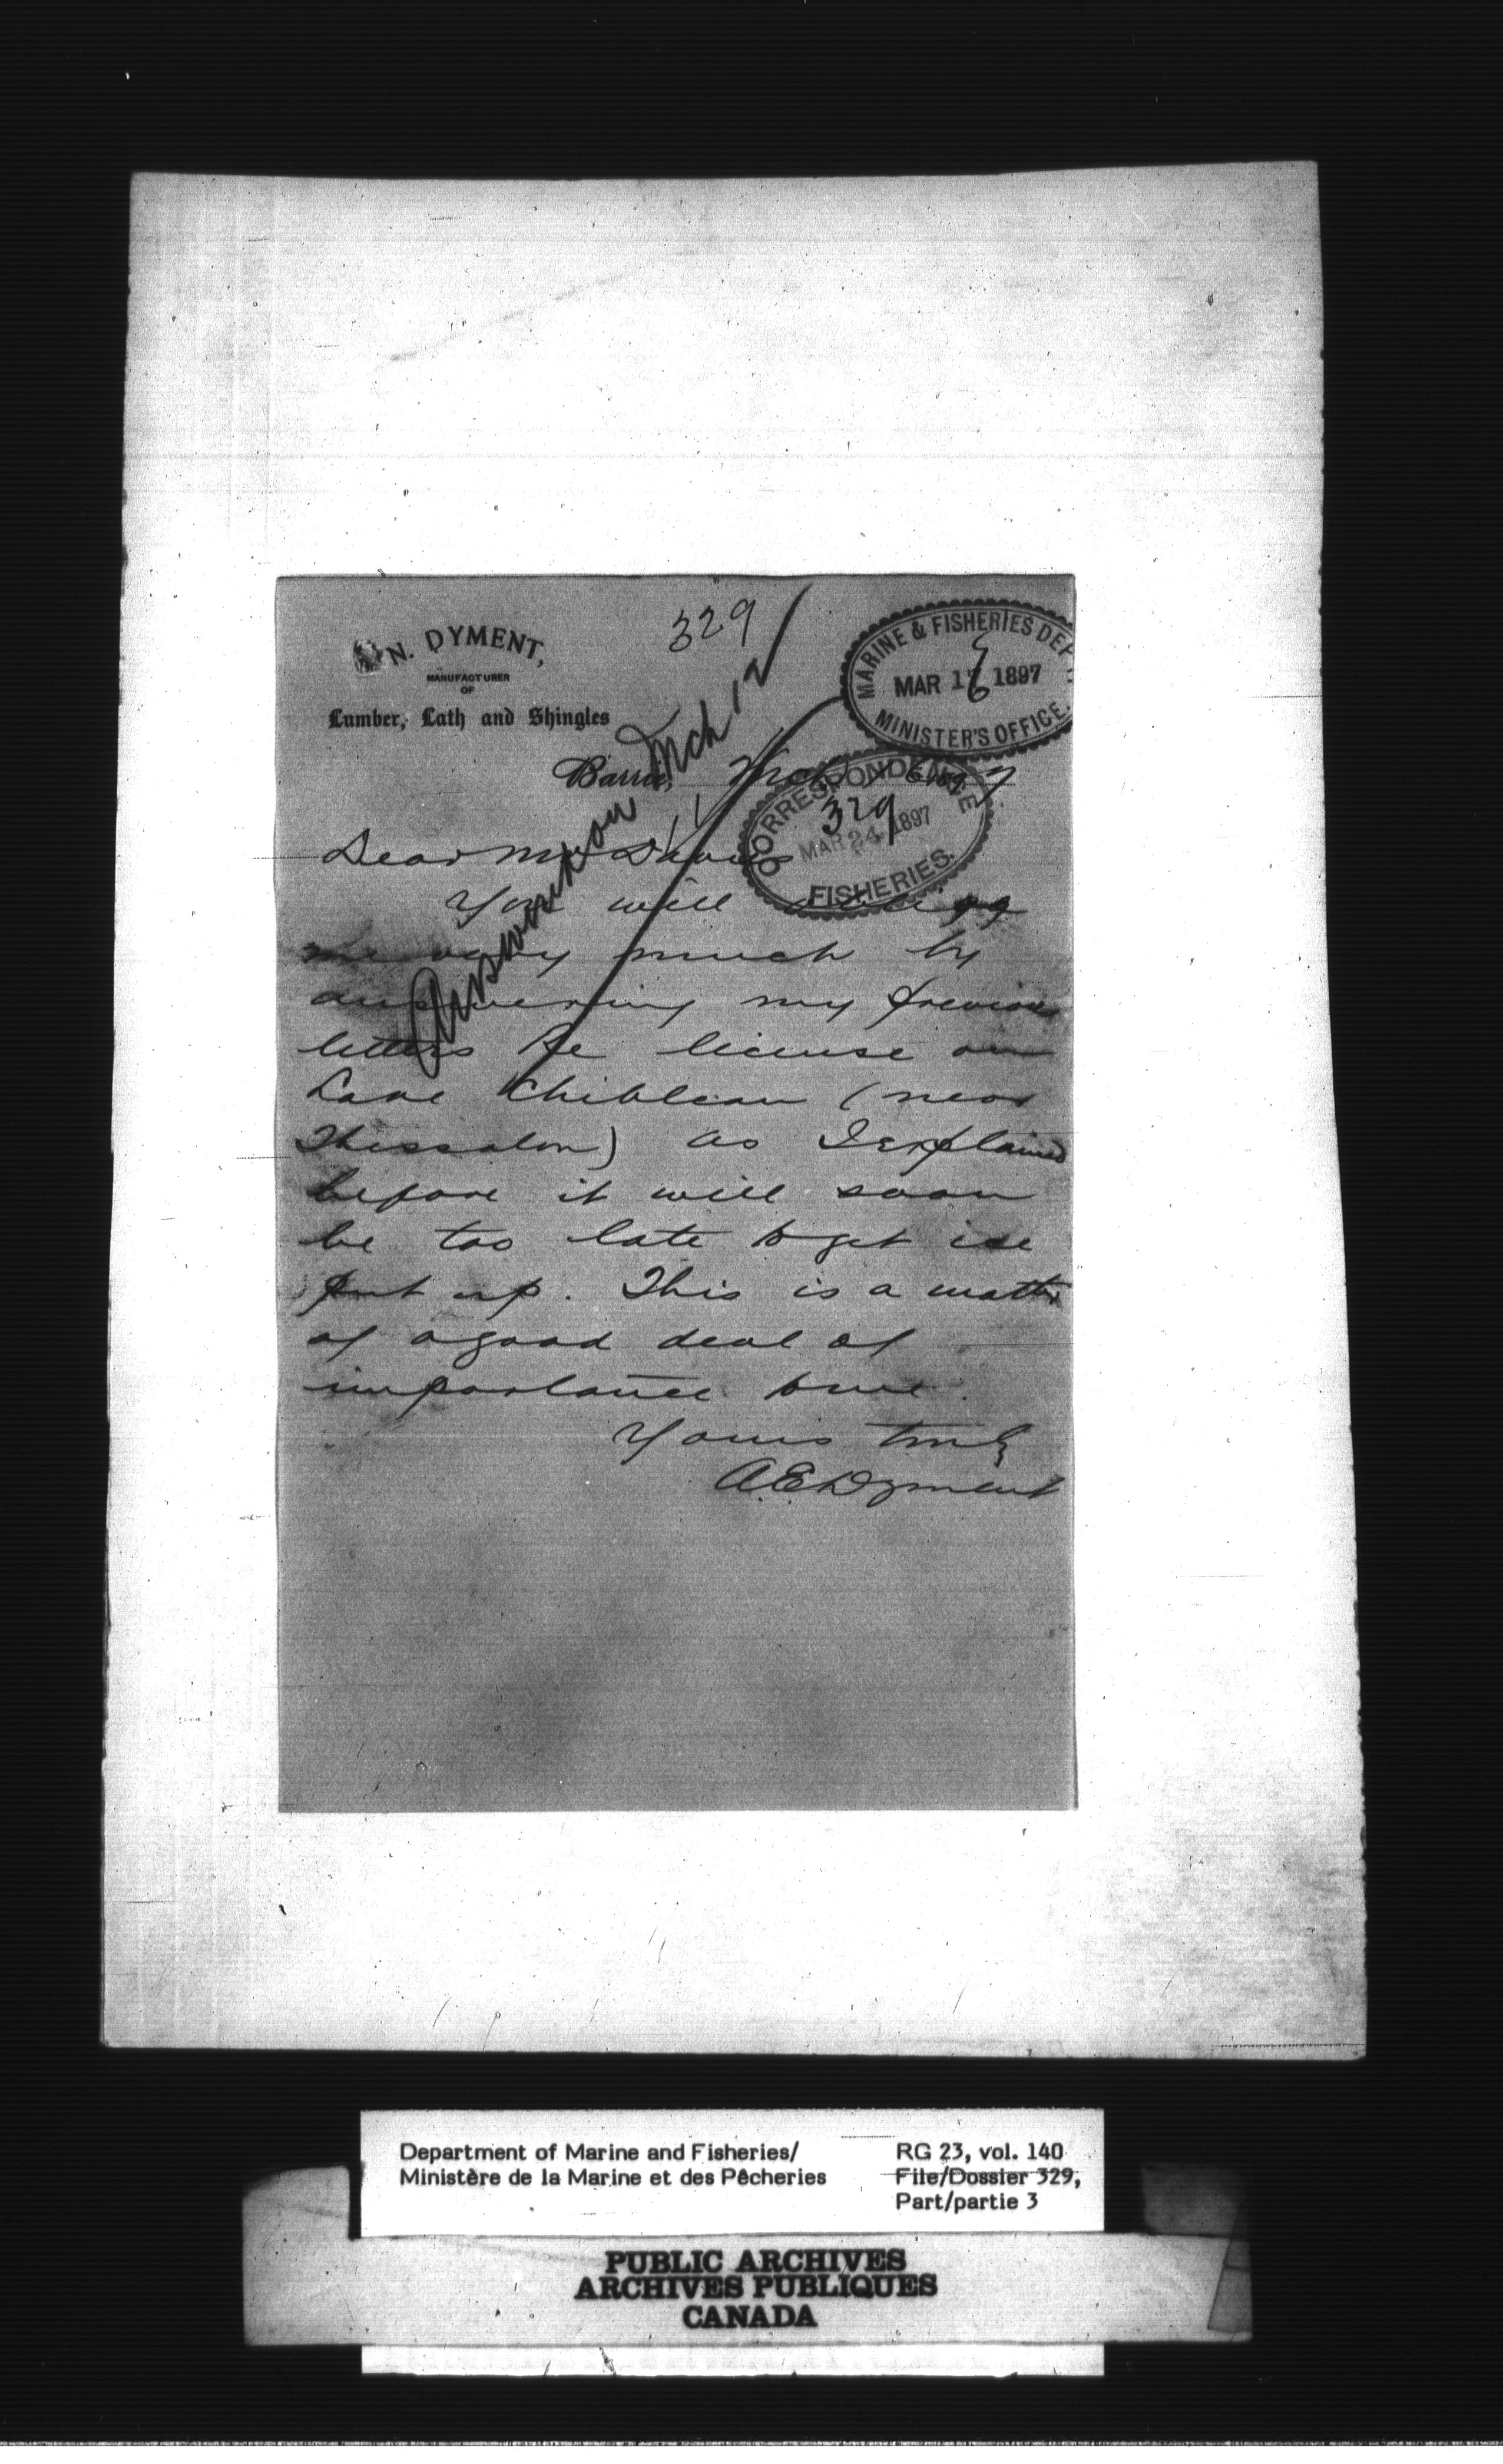 329
N. DYMENT,
MANUFACTURER
OF
Lumber, Lath and Shingles
MARINE & FISHERIES DEPT
MAR 1 1897
MINISTER'S OFFICE.
Barrie, Mch 6 1897
Mch 12
CORRESPONDENCE
329
MAR 24 1897
FISHERIES.
Dear Mr Davies
You will oblige
me very much by
answering my previous
letters Re license on
Lake Chiblean (near
Thessalon) as I explained
before it will soon
be too late to get ice
put up. This is a matter
of a good deal of
importance to me.
Yours truly
A E Dyment
Department of Marine and Fisheries/
Ministère de la Marine et des Pêcheries
RG 23, vol. 140
File/Dossier 329,
Part/partie 3
PUBLIC ARCHIVES
ARCHIVES PUBLIQUES
CANADA